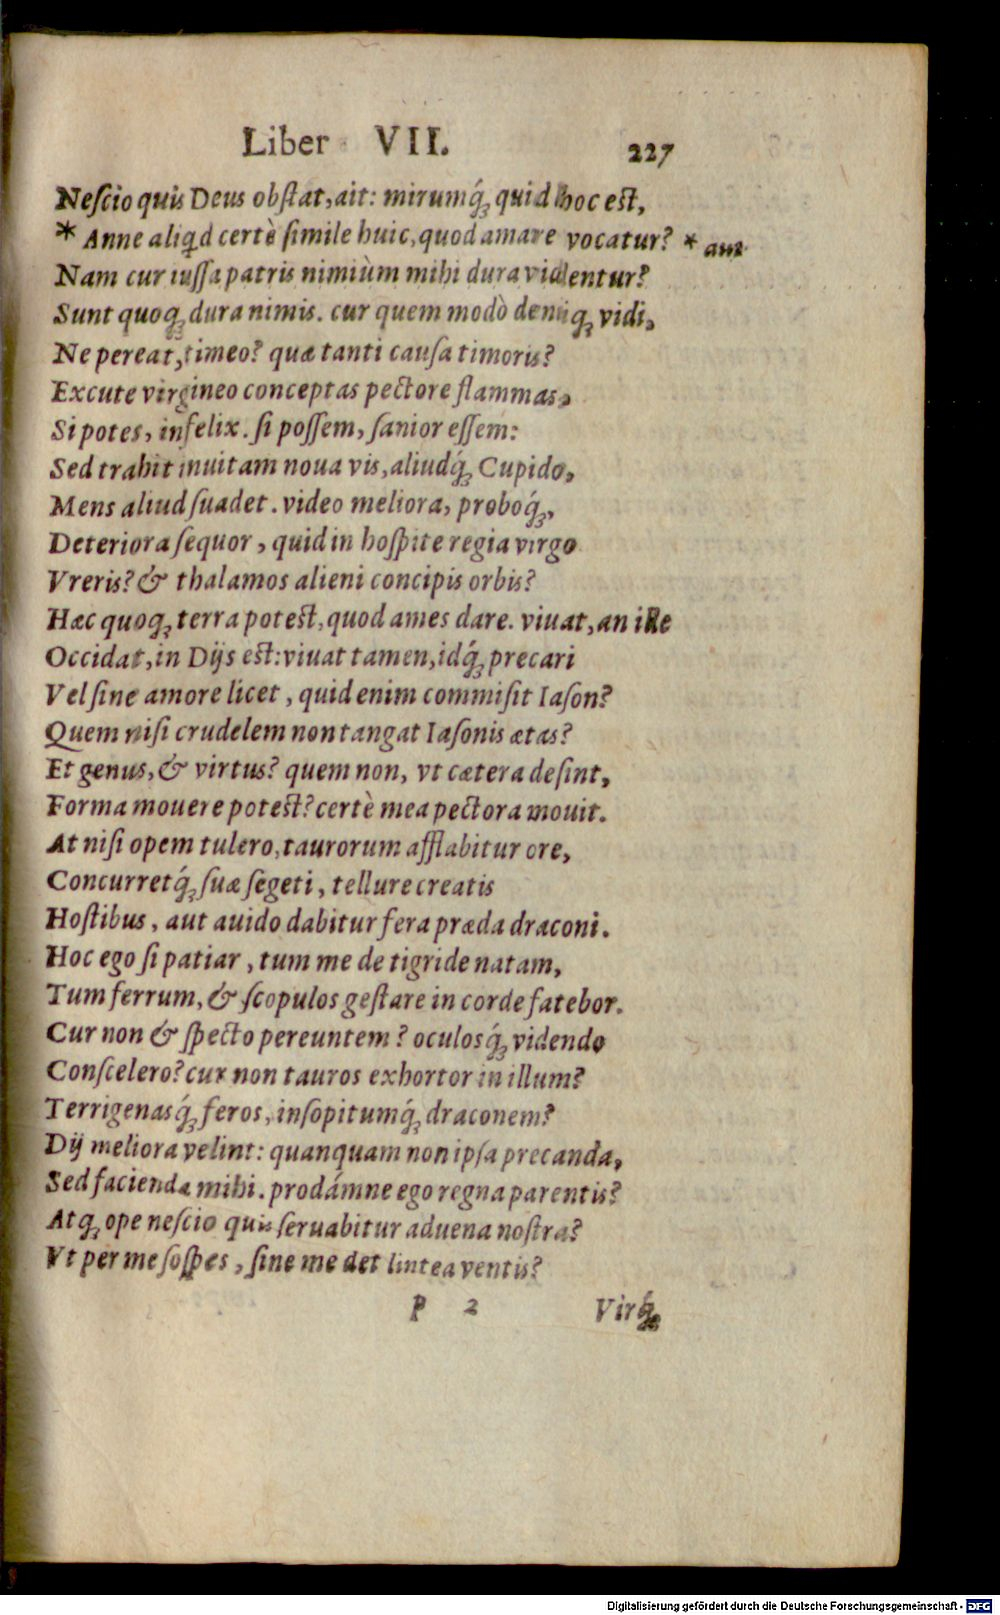 Liber VII. 227
Neſcio quis Deus obſtat, ait: mirumq́ꝫ quid hoc eſt,
* Anne aliqd certè ſimile huic, quod amare vocatur? * aut
Nam cur iuſſa patris nimiùm mihi dura videntur?
Sunt quoqꝫ dura nimis. cur quem modò deniqꝫ vidi,
Ne pereat, timeo? quæ tanti cauſa timoris?
Excute virgineo conceptas pectore flammas,
Si potes, infelix. ſi poſſem, ſanior eſſem:
Sed trahit inuitam noua vis, aliudq́ꝫ Cupido,
Mens aliud ſuadet. video meliora, proboq́ꝫ,
Deteriora ſequor, quid in hoſpite regia virgo
Vreris? & thalamos alieni concipis orbis?
Hæc quoqꝫ terra poteſt, quod ames dare. viuat, an ille
Occidat, in Dijs eſt: viuat tamen, idq́ꝫ precari
Vel ſine amore licet, quid enim commiſit Iaſon?
Quem niſi crudelem non tangat Iaſonis ætas?
Et genus, & virtus? quem non, vt cætera deſint,
Forma mouere poteſt? certè mea pectora mouit.
At niſi opem tulero, taurorum afflabitur ore,
Concurretq́ꝫ ſuæ ſegeti, tellure creatis
Hoſtibus, aut auido dabitur fera præda draconi.
Hoc ego ſi patiar, tum me de tigride natam,
Tum ferrum, & ſcopulos geſtare in corde fatebor.
Cur non & ſpecto pereuntem? oculosq́ꝫ videndo
Conſcelero? cur non tauros exhortor in illum?
Terrigenasq́ꝫ feros, inſopitumq́ꝫ draconem?
Dij meliora velint: quanquam non ipſa precanda,
Sed facienda mihi. prodámne ego regna parentis?
Atqꝫ ope neſcio quis ſeruabitur aduena noſtra?
Vt per me ſoſpes, ſine me det lintea ventis?
P 2 Virq́ꝫ
Digitalisierung gefördert durch die Deutsche Forschungsgemeinschaft - DFG